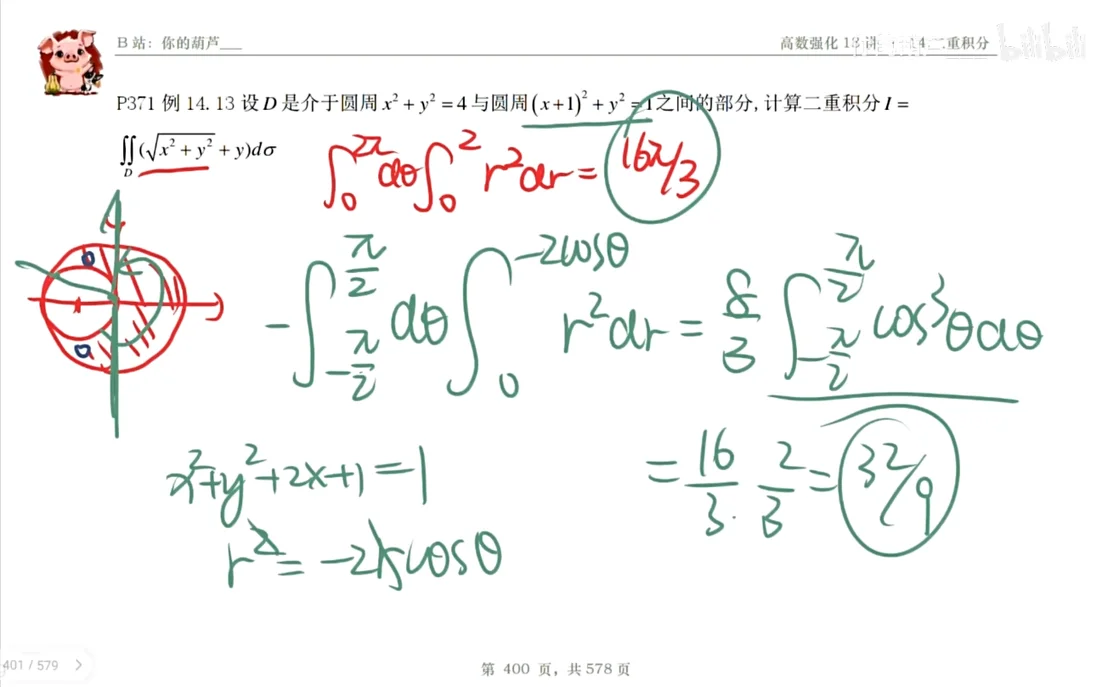 B 站：你的葫芦___
高数强化 13 讲 14.二重积分
bilibili
P371 例 14.13 设 D 是介于圆周 x² + y² = 4 与圆周 (x+1)² + y² = 1 之间的部分, 计算二重积分 I =
∬_D (√(x² + y²) + y)dσ
∫_0^{2π} dθ ∫_0^2 r²dr = 16π/3
-∫_{-π/2}^{π/2} dθ ∫_0^{-2cosθ} r²dr = 8/3 ∫_{-π/2}^{π/2} cos³θdθ
x²+y²+2x+1=1
= 16/3 · 2/3 = 32/9
r² = -2rcosθ
401 / 579 >
第 400 页, 共 578 页